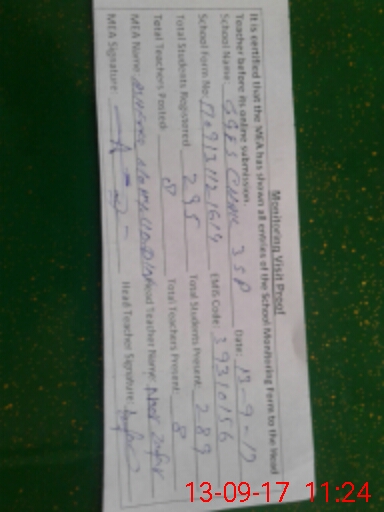 Monitoring Visit Proof
It is certified that the MEA has shown all entries of the School Monitoring Form to the Head
Teacher before its online submission.
School Name: GGES 3SP Date: 13-9-17
School Form No: EMIS Code: 39310156
Total Students Registered 295 Total Students Present: 289
Total Teachers Posted: 8 Total Teachers Present: 8
MEA Name Head Teacher Name:
MEA Signature: Head Teacher Signature:
13-09-17 11:24